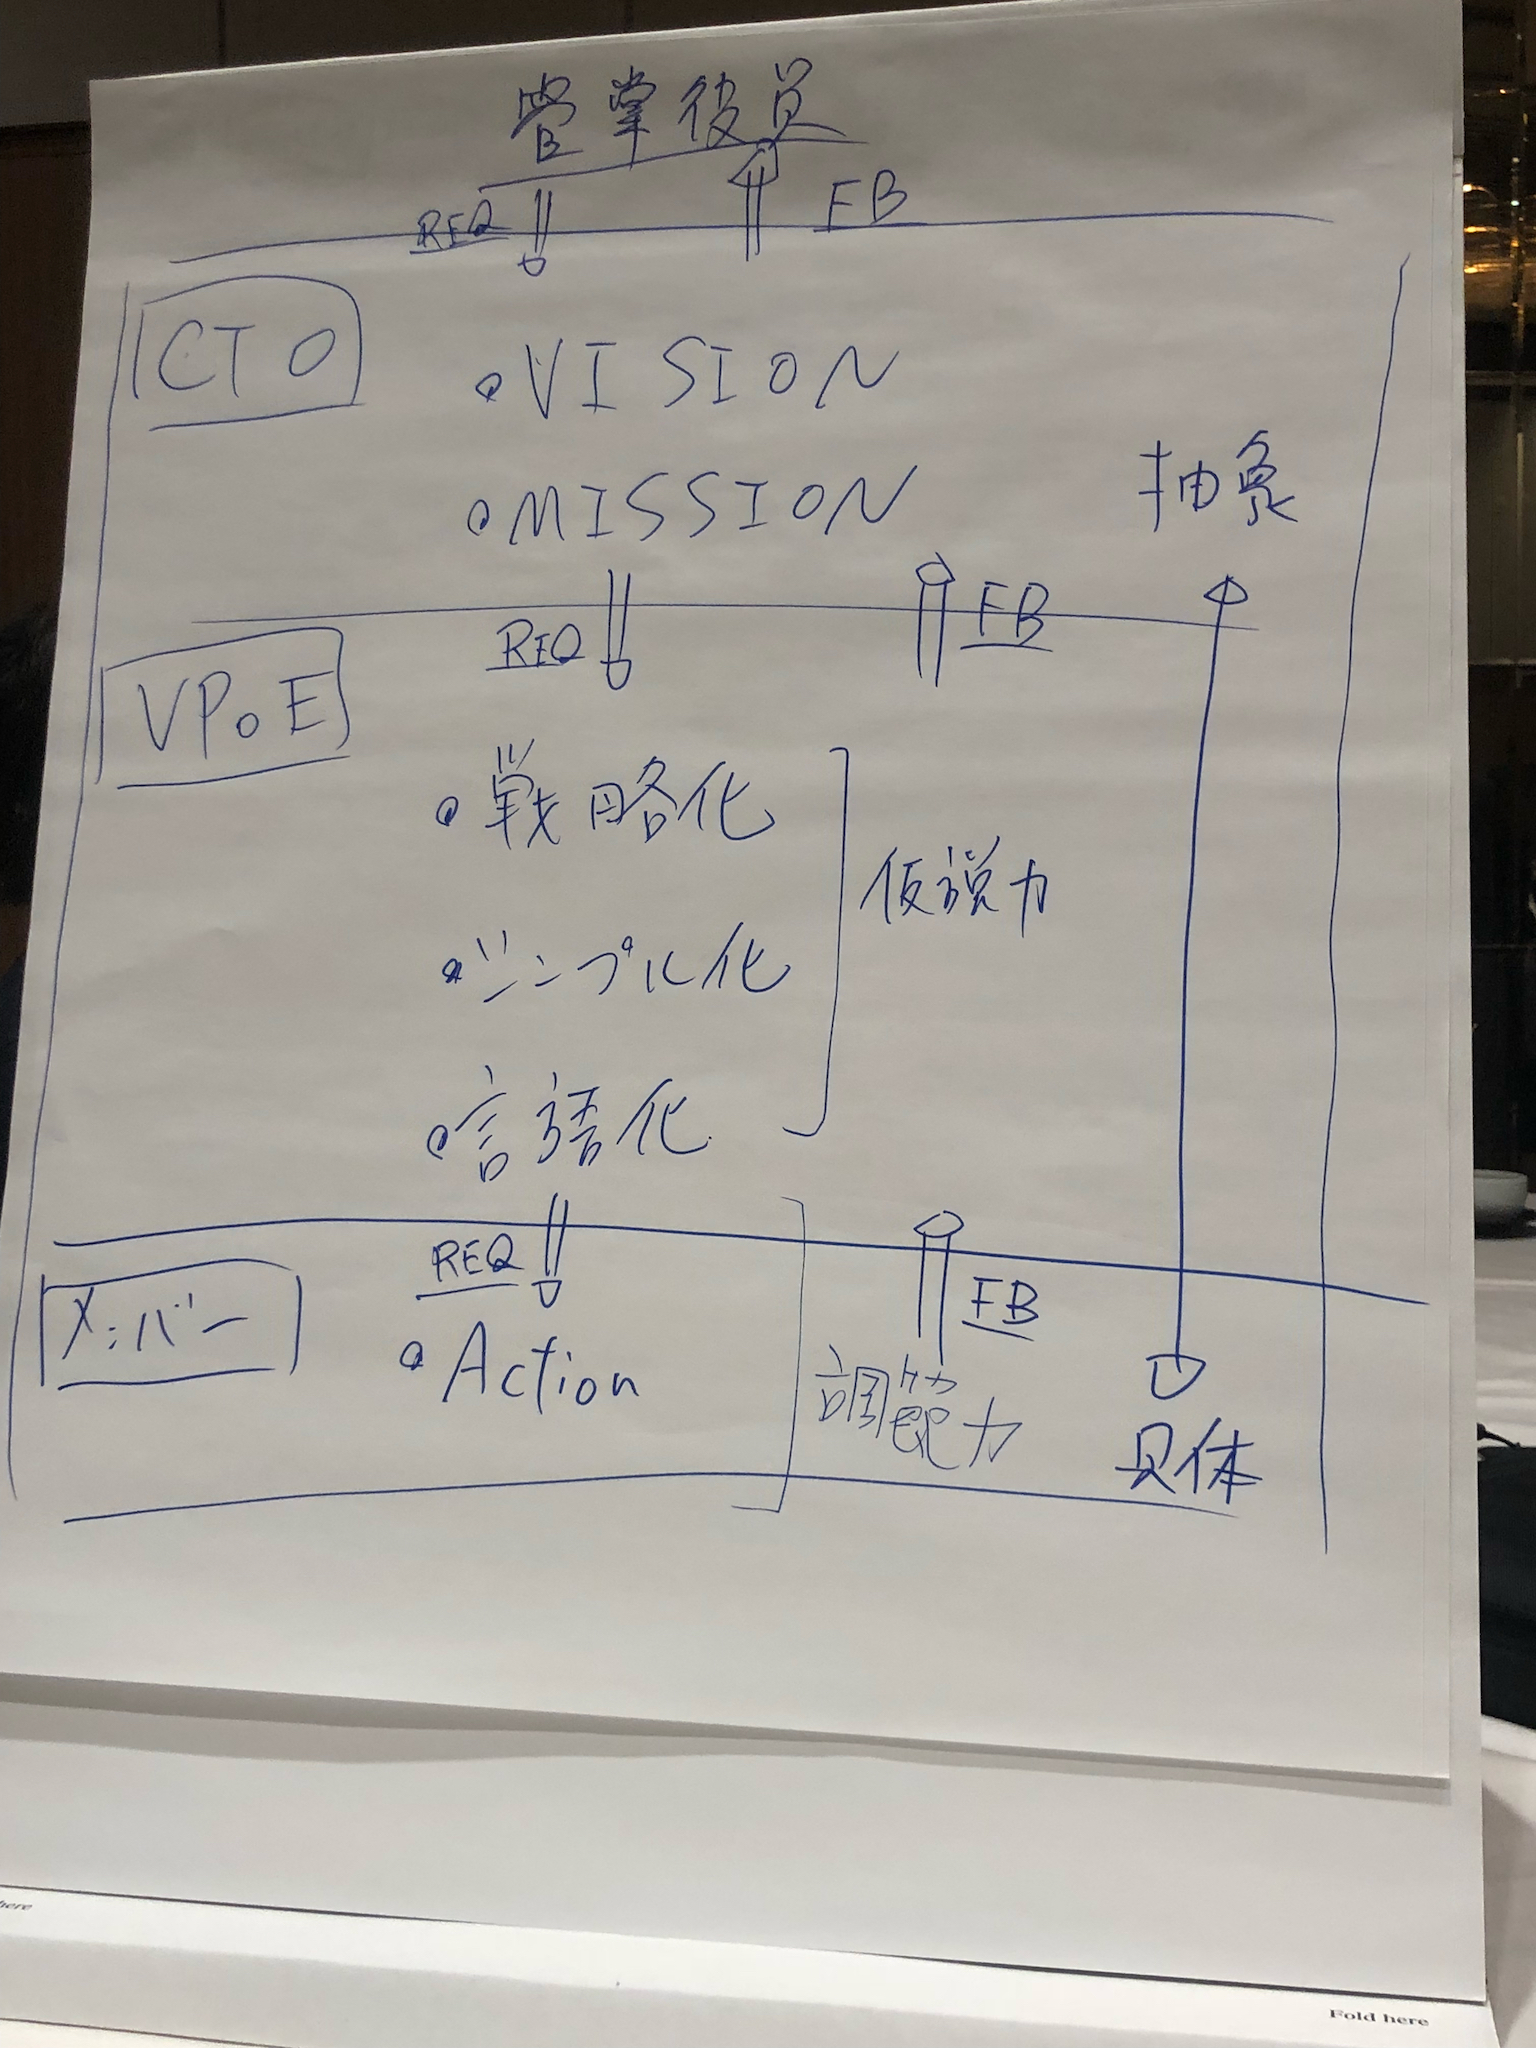 管掌役員
REQ FB
CTO
・VISION
・MISSION
抽象
REQ FB
VPoE
・戦略化
仮説力
・シンプル化
・言語化
REQ FB
メンバー
・Action
力
具体
here
Fold here